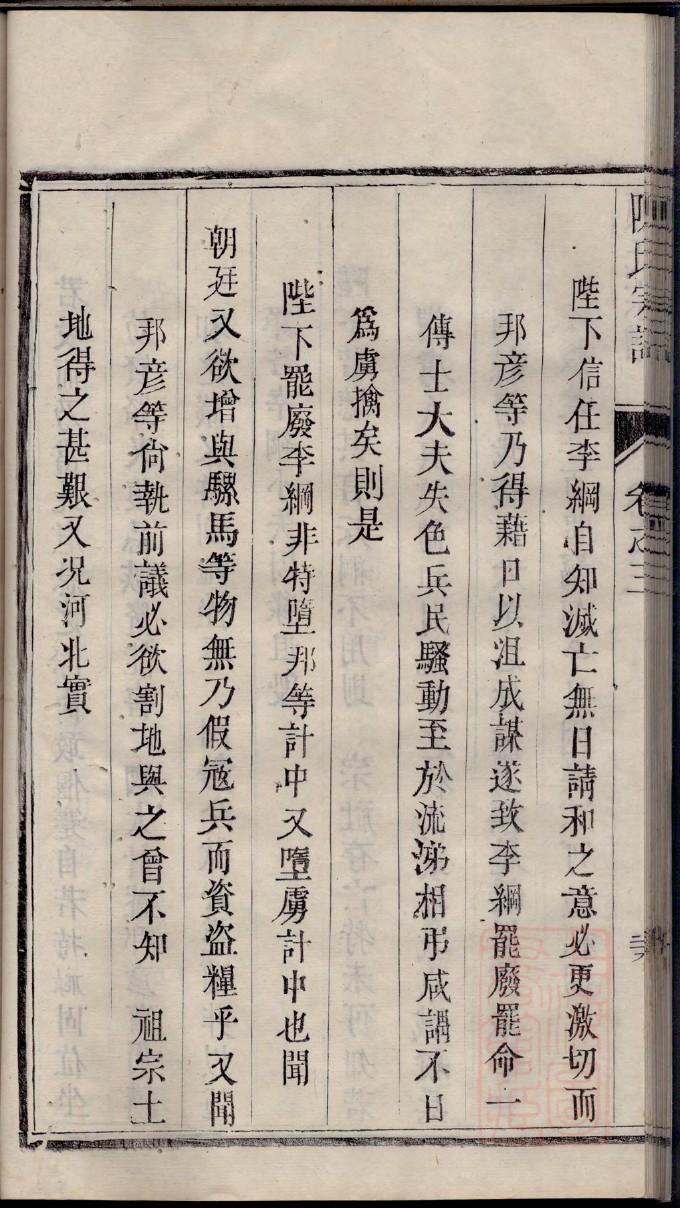 陛下信任李綱自知滅亡無日請和之意必更激切而
邦彥等乃得藉口以沮成謀遂致李綱罷廢罷命一
傳士大夫失色兵民騷動至於流涕相弔咸謂不日
爲虜擒矣則是
陛下罷廢李綱非特墮邦等計中又墮虜計中也聞
朝廷又欲增與騾馬等物無乃假寇兵而資盜糧乎又聞
邦彥等尙執前議必欲割地與之曾不知 祖宗土
地得之甚艱又况河北實
陳氏宗譜 卷之三